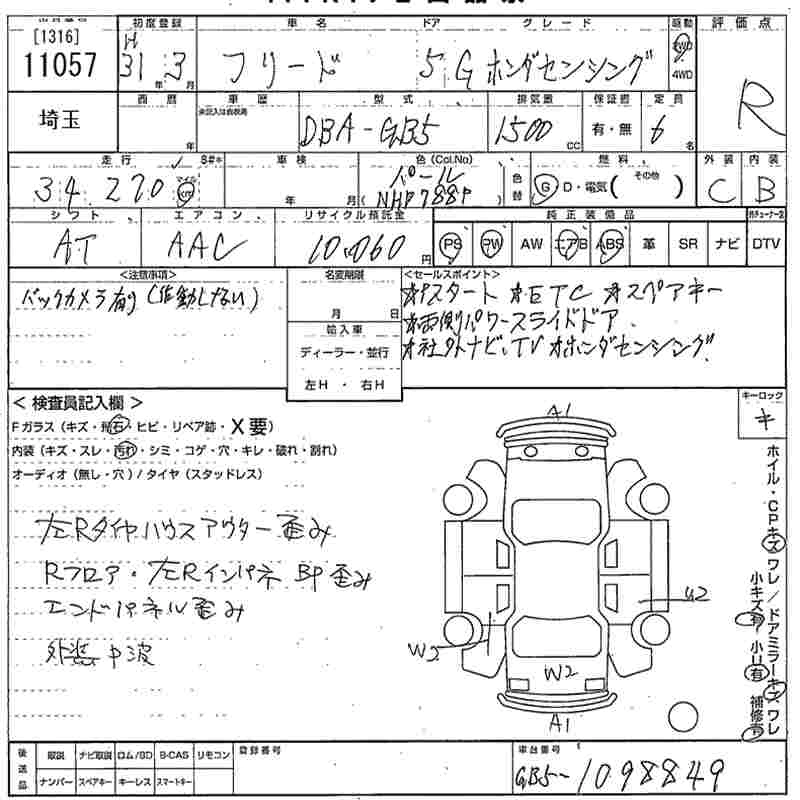 [1316]
11057
初度登録
H
31年 3月
車名
フリード
ドア
5
グレード
G ホンダセンシング
駆動
2WD
4WD
評価点
R
埼玉
西暦
年
車歴
未記入は自家用
型式
DBA-GB5
排気量
1500 CC
保証書
有・無
定員
6 名
走行
34 270
マイル
km
S#*
車検
年 月
色(Col.No)
パール
( NHP788P )
色替
燃料
G D・電気( その他 )
外装
C
内装
B
シフト
AT
エアコン
AAC
リサイクル預託金
10.060 円
純正装備品
PS PW AW エアB ABS 革 SR ナビ
DTV
<注意事項>
バックカメラ有り(作動しない)
名変期限
月 日
輸入車
ディーラー・並行
左H ・ 右H
<セールスポイント>
オPスタート オETC オスペアキー
オ両側パワースライドドア
オ社外ナビ、TV オホンダセンシング
キーロック
キ
<検査員記入欄>
Fガラス(キズ・飛石・ヒビ・リペア跡・X要)
内装(キズ・スレ・汚れ・シミ・コゲ・穴・キレ・破れ・割れ)
オーディオ(無し・穴)/タイヤ(スタッドレス)
左Rタイヤハウスアウター歪み
Rフロア・左Rインパネ BP歪み
エンドパネル歪み
外装中波
A1
U2
W2
W2
A1
ホイル・CPキズ ワレ/ドアミラーキズ ワレ
小キズ有 小U有 補修有
後送品
取説 ナビ取説 ロム/BD B-CAS リモコン
ナンバー スペアキー キーレス スマートキー
登録番号
車台番号
GB5-1098849